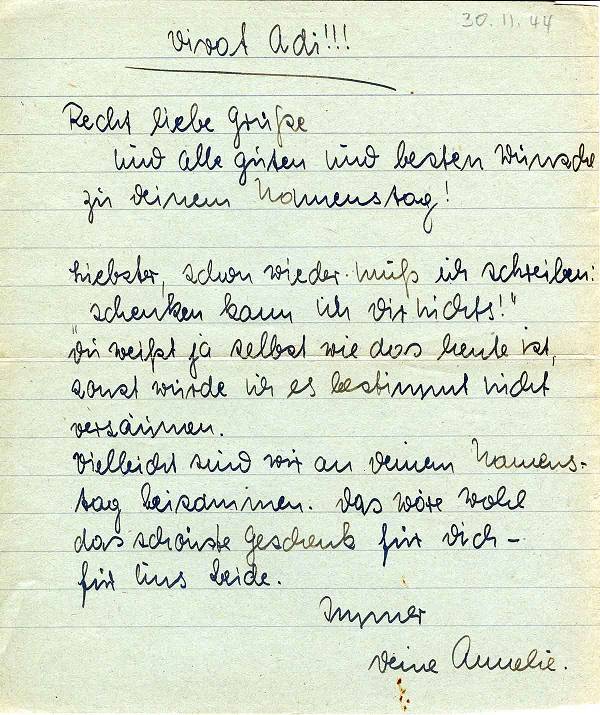 30.11.44
Vivat Adi!!!
Recht liebe Grüße
und alle guten und besten Wünsche
zu deinem Namenstag!
Liebster, schon wieder muß ich schreiben:
"schenken kann ich dir nichts!"
Du weißt ja selbst wie das heute ist,
sonst würde ich es bestimmt nicht
versäumen.
Vielleicht sind wir an deinem Namens-
tag beisammen. Das wäre wohl
das schönste Geschenk für Dich –
für uns beide.
Immer
deine Annelie.